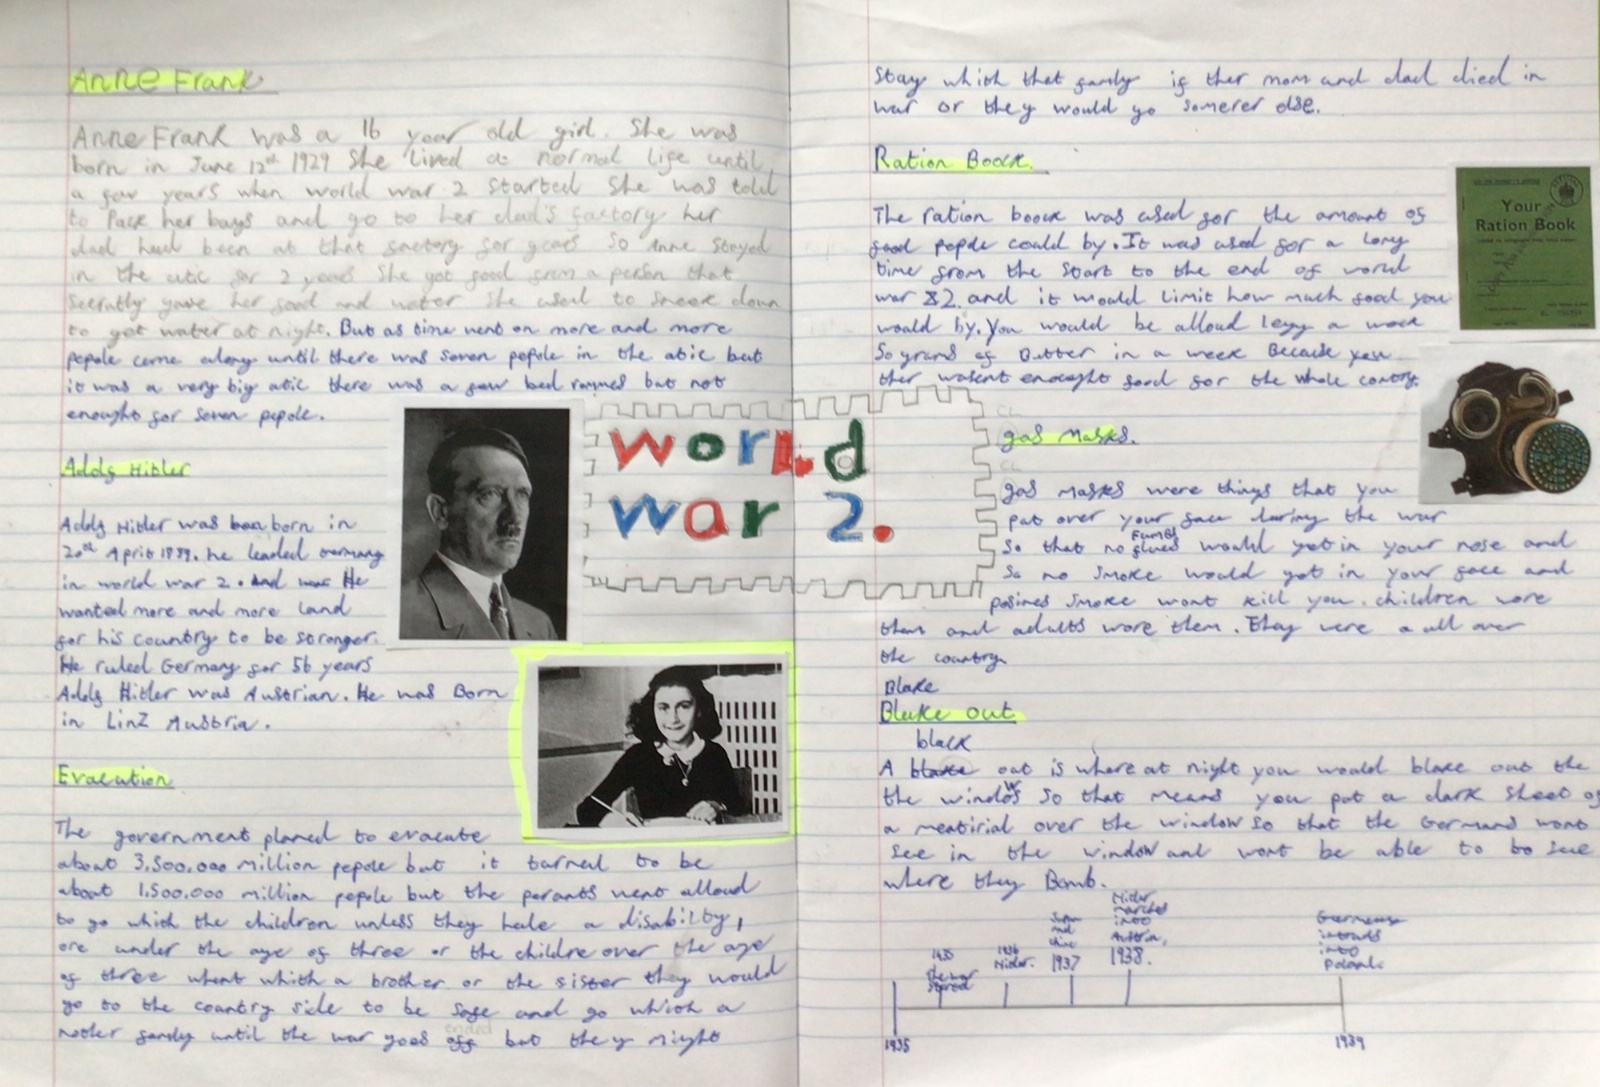 Anne Frank
Anne Frank was a 16 year old girl. She was
born in June 12th 1929 She lived a normal life until
a few years when world war 2 started She was told
to Pack her bags and go to her dad's factory her
dad had been at that factory for years So Anne Stayed
in the atic for 2 years She got food from a person that
Secratly gave her food and water She used to sneek down
to get water at night. But as time went on more and more
pepole came along until there was seven pepole in the atic but
it was a very big atic there was a few bed rommes but not
enought for seven pepole.
Adolf Hitler
Adolf Hitler was born in
20th April 1889. he leaded Germany
in world war 2. and He
wanted more and more land
for his country to be stronger.
He ruled Germany for 56 years
Adolf Hitler was Austrian. He was Born
in Linz Austria.
Evacution
The government planed to evacute
about 3,500,000 million pepole but it turned to be
about 1,500,000 million pepole but the parants went alloud
to go which the children unless they hade a disability,
are under the age of three or the childre over the age
of three whent which a brother or the sister they would
go to the country side to be safe and go which a
nother family until the war goes off ended but they might
world
war 2.
Stay which that family if ther mom and dad died in
war or they would go somerer else.
Ration Boock.
The ration boock was used for the amount of
food pepole could by. It was used for a long
time from the Start to the end of world
war 2. and it would limit how much food you
would by. You would be alloud 1egg a week
50grams of Butter in a week Because
ther wasent enought food for the whole contry.
Your
Ration Book
gas Masks.
gas masks were things that you
put over your face during the war
So that no fumes would get in your nose and
So no Smoke would get in your face and
Smoke wont kill you. children wore
them and adults wore them. They were a all over
the country.
Blake
Blake out
black
A blake out is where at night you would blake out the
the windows So that means you put a dark Sheet of
a meatirial over the window So that the Germans wont
See in the window and wont be able to to see
where they Bomb.
1935
the war
started
1936
Hitler.
1937
Hitler
marched
into
Austria,
1938.
Germany
into
Poland.
1935
1939